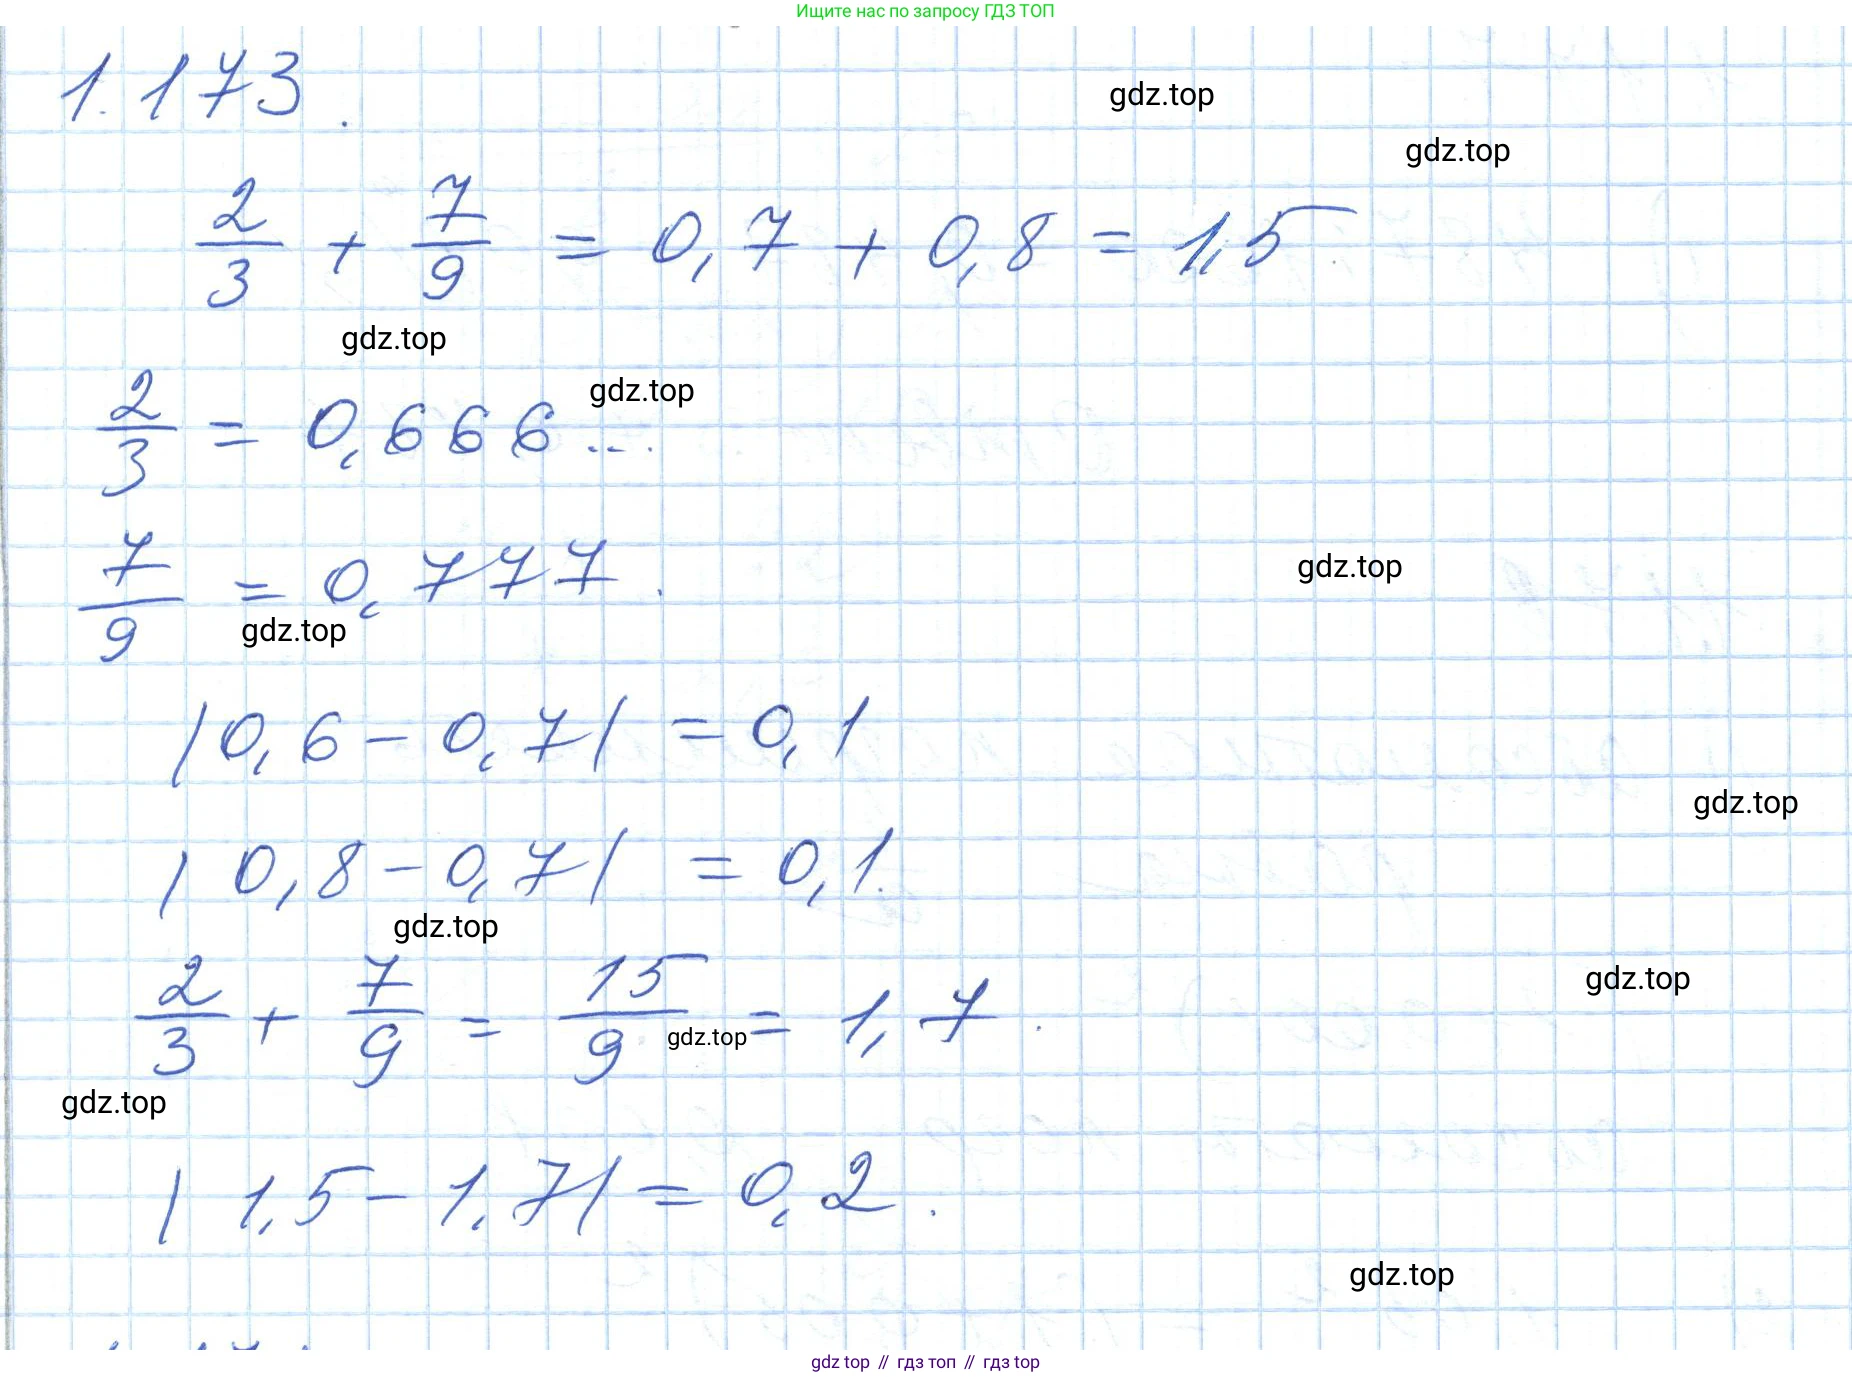 Ищите нас по запросу ГДЗ ТОП
1.173.
gdz.top
gdz.top
2/3 + 7/9 = 0,7 + 0,8 = 1,5
gdz.top
gdz.top
2/3 = 0,666...
7/9 = 0,777.
gdz.top
gdz.top
|0,6 - 0,7| = 0,1
gdz.top
|0,8 - 0,7| = 0,1.
gdz.top
gdz.top
2/3 + 7/9 = 15/9 = 1,7.
gdz.top
gdz.top
|1,5 - 1,7| = 0,2.
gdz.top
gdz top // гдз топ // гдз top